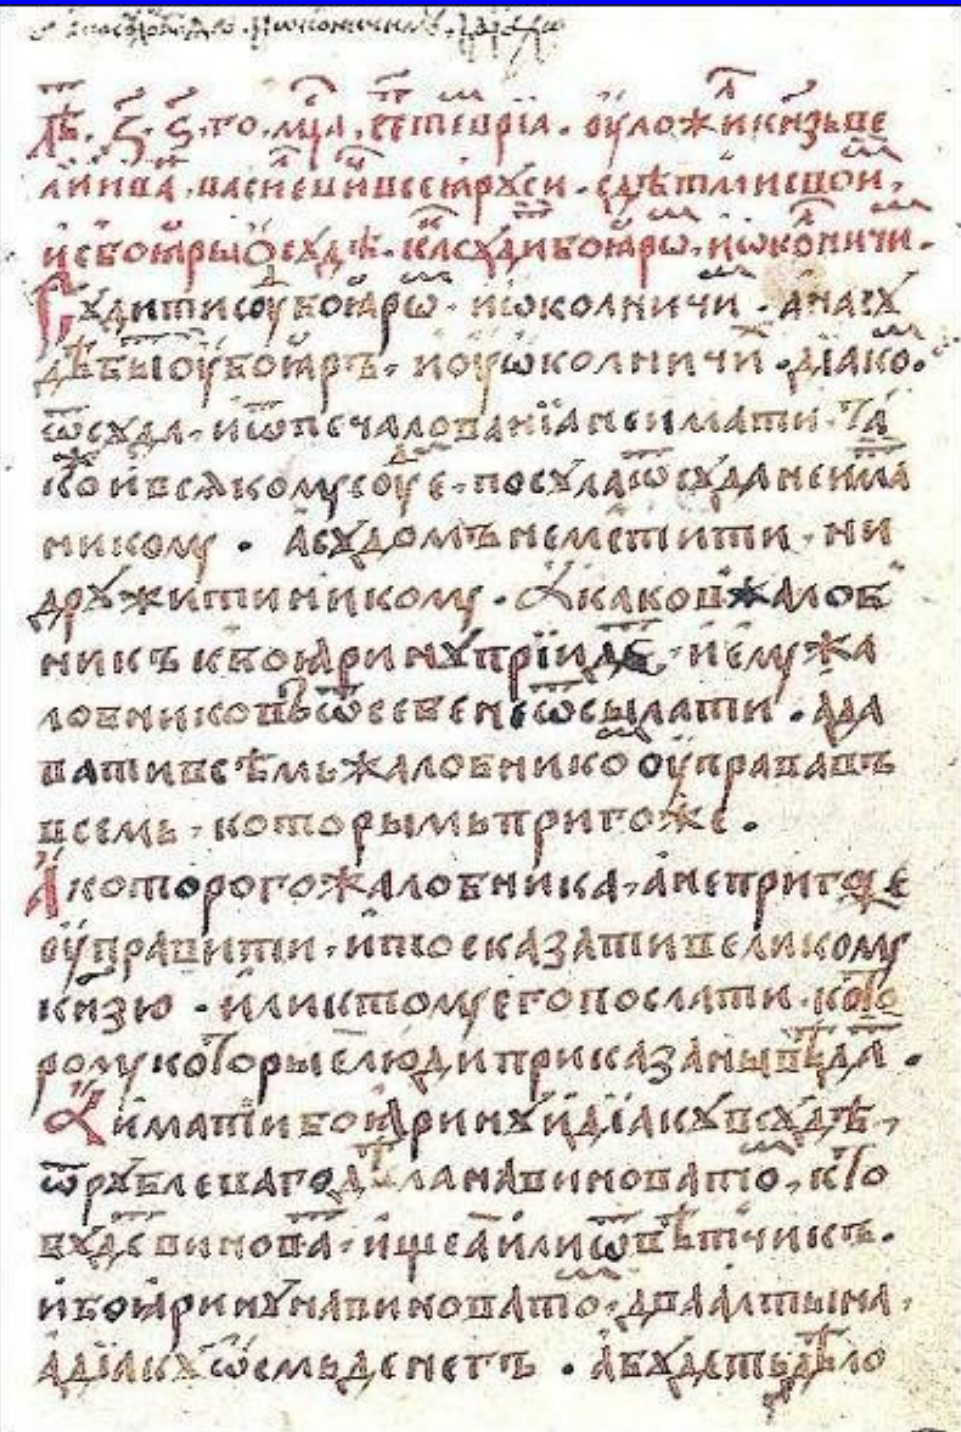 лѣт. ҂з. ѕ. го. мцⷭ҇а, септеврїа. оуложилкнѧзьве
ликииива. васильевичьвсеꙗрꙋси. сдѣтмисвои,
исбоꙗрыѡсꙋдѣ. какⷭꙋдитибоꙗрѡⷨ, иѡколничиⷨ.
Сꙋдитисоуⷣбоꙗрѡⷨ. иѡколничиⷨ. анасꙋ
дѣбытиоубоꙗръ. иоуѡколничиⷯ. дїакоⷨ.
аѿсꙋда. иѿпечалованїанеимати. та
коⷤивсѧкомусоуⷣе. посулаѿсꙋданеима
никому. асꙋдомънемстити, ни
дрꙋжитиникому. Акаковжалоб
никъкбоꙗринꙋприидеⷮ, иемужа
лобниковъѿсебенеѿсылати. ада
вативсѣмьжалобникоⷨоуправавъ
всемь, которымьпригоже.
Акоторогожалобника, анепригоже
оуправити. итосказативеликому
кнѧзю. иликтомуегопослати. кото
ромукоторыелюдиприказанывѣдаⷮ.
Аиматибоꙗринꙋидїакꙋвсꙋдѣ,
ѿрꙋблевагодѣланавиноватоⷨ, кто
бꙋдеⷮвиноваⷮ. ищеаилиѿвѣтчикъ.
ибоꙗринꙋнавиноватоⷨ. дваалтына,
адїакꙋѡсмьденегъ. абꙋдетьдѣло